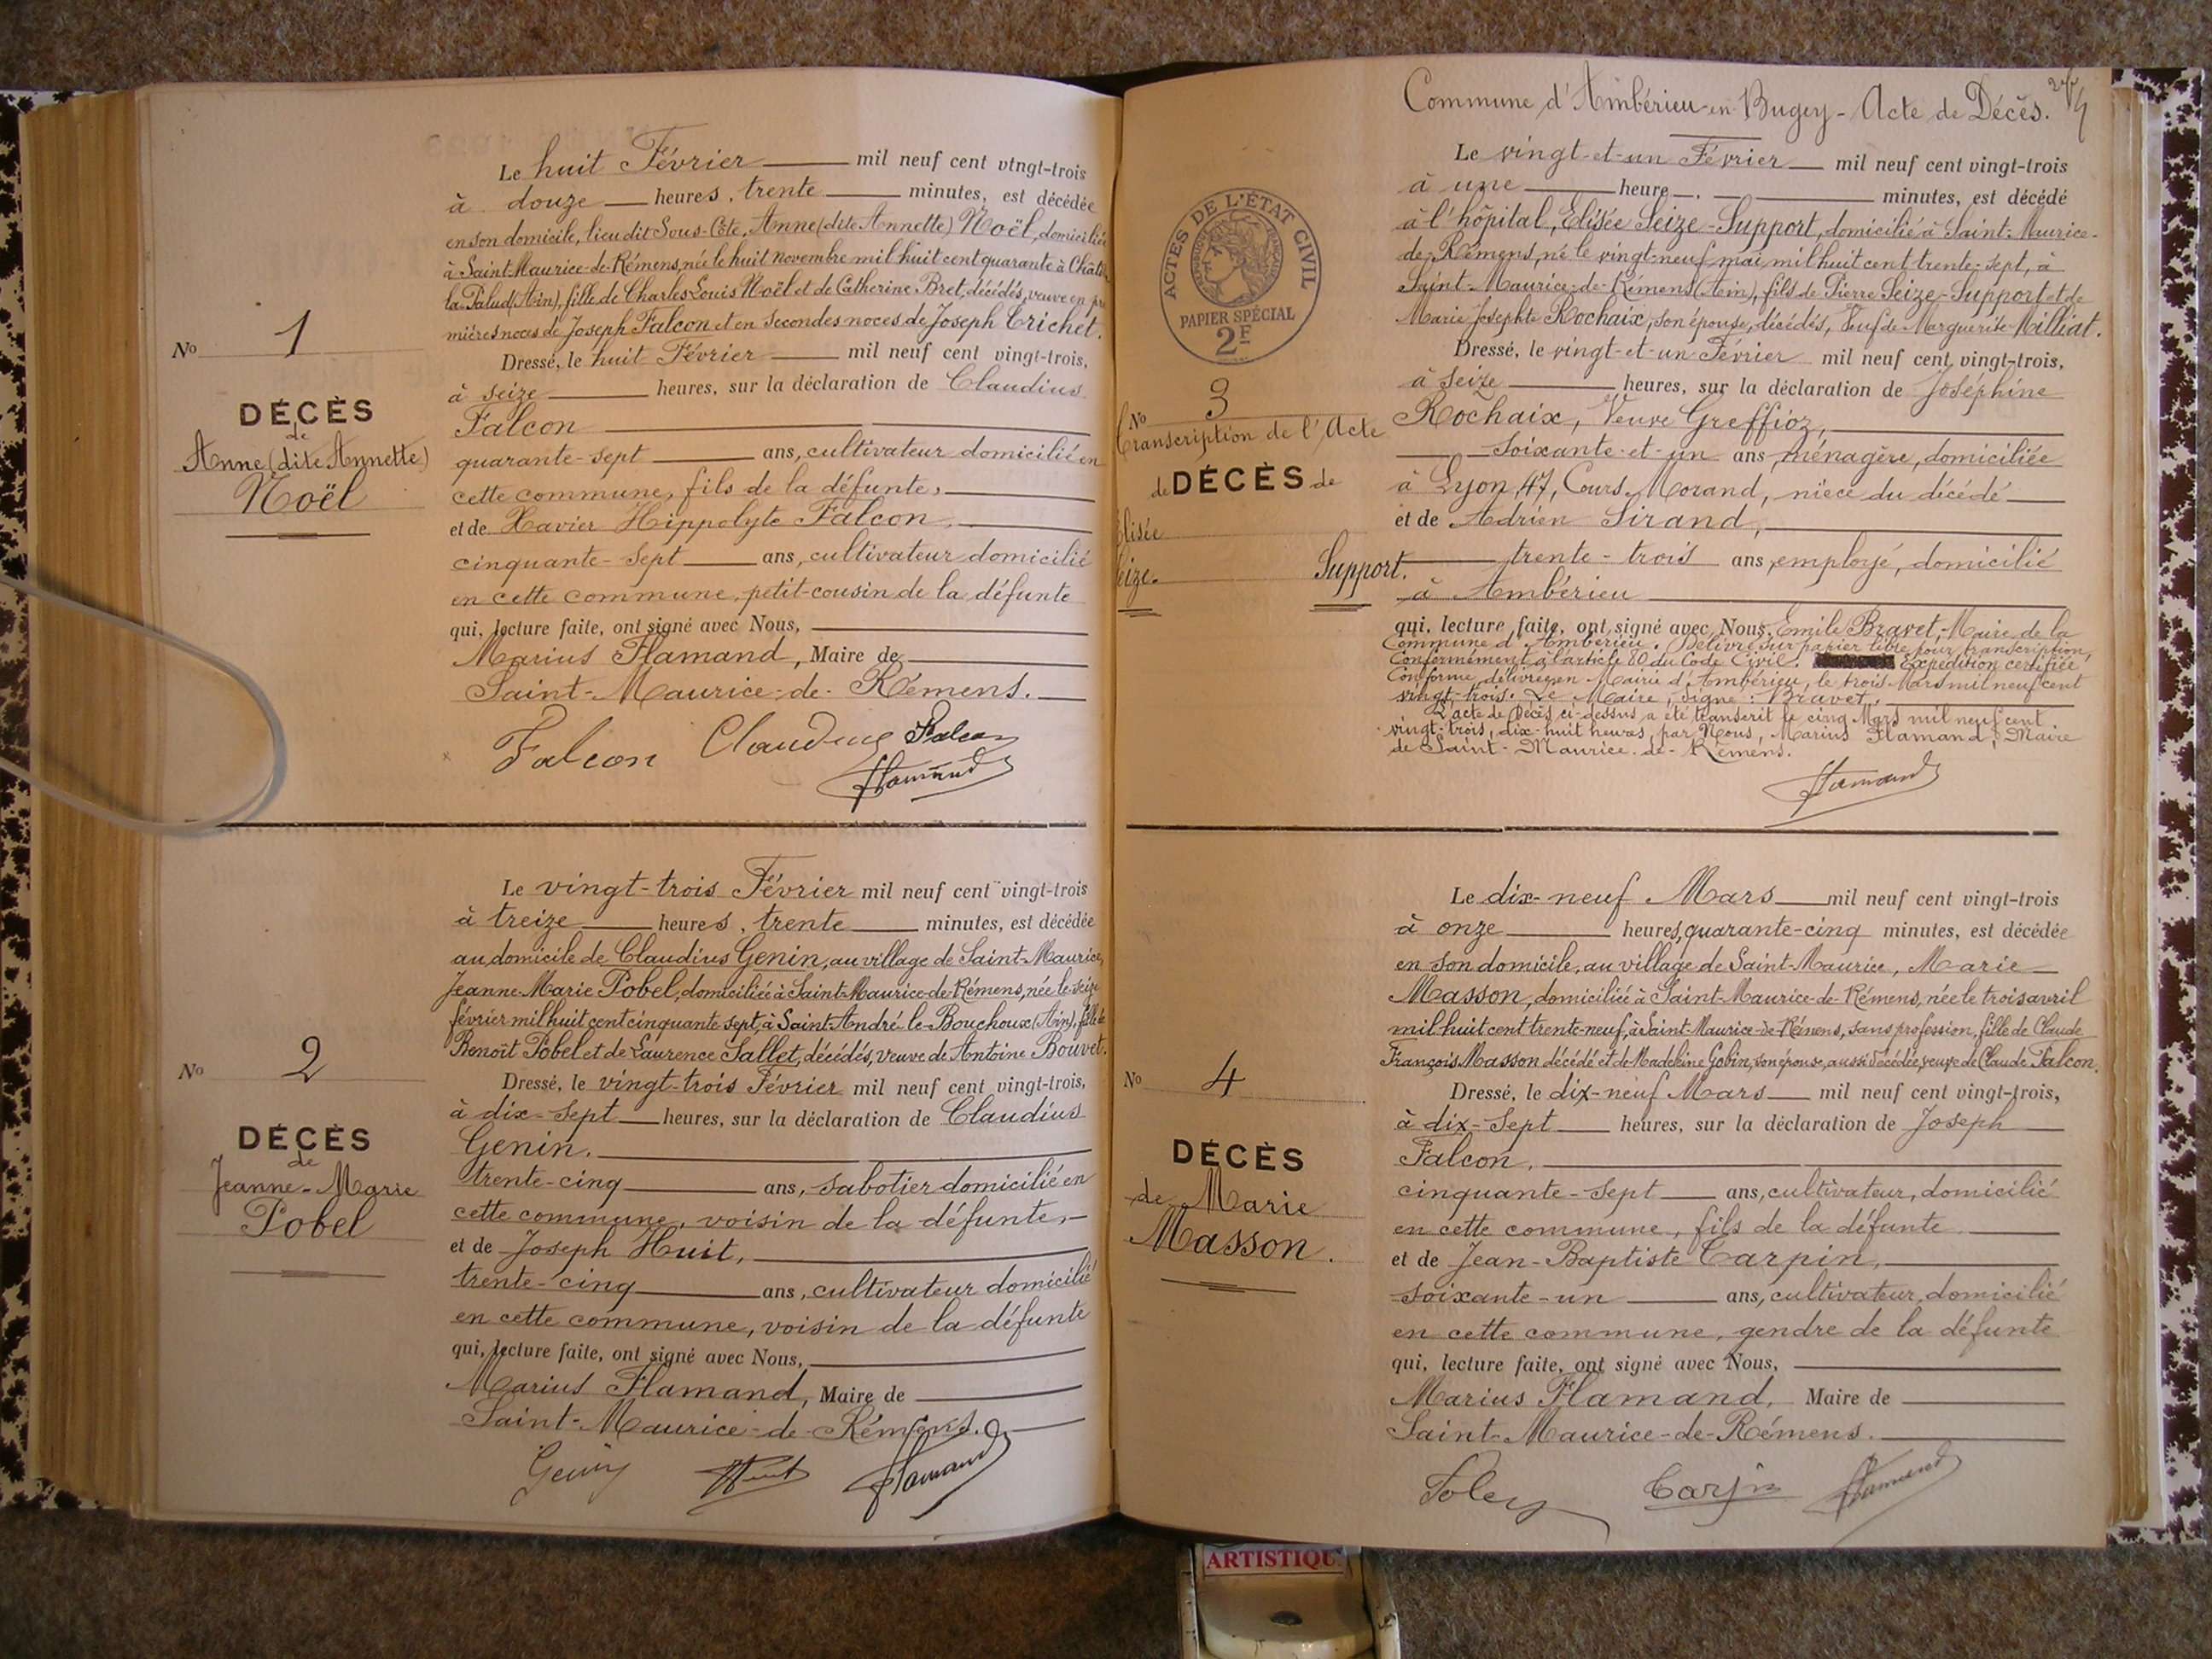 Le huit Février mil neuf cent vingt-trois
à douze heures, trente minutes, est décédée
en son domicile, lieu dit Sous-Côte, Anne (dite Annette) Noël, domiciliée
à Saint-Maurice-de-Rémens, née le huit novembre mil huit cent quarante à
la-Palud (Ain), fille de Charles-Louis Noël et de Catherine Bret, décédés, veuve en
mières noces de Joseph Falcon et en secondes noces de Joseph Trichet.
Dressé, le huit Février mil neuf cent vingt-trois,
à seize heures, sur la déclaration de Claudius
Falcon
quarante-sept ans, cultivateur domicilié en
cette commune, fils de la défunte,
et de Xavier Hippolyte Falcon,
cinquante-sept ans, cultivateur domicilié
en cette commune, petit-cousin de la défunte
qui, lecture faite, ont signé avec Nous,
Marius Flamand, Maire de
Saint-Maurice-de-Rémens.
Falcon Claudius Falcon
Flamand
No 1
DÉCÈS
de
Anne (dite Annette)
Noël
Le vingt-trois Février mil neuf cent vingt-trois
à treize heures, trente minutes, est décédée
au domicile de Claudius Genin, au village de Saint-Maurice,
Jeanne-Marie Pobel, domiciliée à Saint-Maurice-de-Rémens, née le seize
février mil huit cent cinquante sept, à Saint-André-le-Bouchoux (Ain), fille de
Benoît Pobel et de Laurence Sallet, décédés, veuve de Antoine Bouvet.
Dressé, le vingt-trois Février mil neuf cent vingt-trois,
à dix-sept heures, sur la déclaration de Claudius
Genin,
trente-cinq ans, sabotier domicilié en
cette commune, voisin de la défunte,
et de Joseph Huit,
trente-cinq ans, cultivateur domicilié
en cette commune, voisin de la défunte
qui, lecture faite, ont signé avec Nous,
Marius Flamand, Maire de
Saint-Maurice-de-Rémens.
Genin Huit Flamand
No 2
DÉCÈS
de
Jeanne-Marie
Pobel
Commune d'Ambérieu-en-Bugey - Acte de Décès.
Le vingt-et-un Février mil neuf cent vingt-trois
à une heure minutes, est décédé
à l'hôpital, Elisée Seize-Support, domicilié à Saint-Maurice-
de-Rémens, né le vingt-neuf mai mil huit cent trente-sept, à
Saint-Maurice-de-Rémens (Ain), fils de Pierre Seize-Support et de
Marie Josephte Rochaix, son épouse, décédés, Veuf de Marguerite Milliat.
Dressé, le vingt-et-un Février mil neuf cent vingt-trois,
à seize heures, sur la déclaration de Joséphine
Rochaix, Veuve Greffioz,
soixante-et-un ans, ménagère, domiciliée
à Lyon, 47, Cours Morand, nièce du décédé
et de Adrien Sirand,
trente-trois ans, employé, domicilié
à Ambérieu
qui, lecture faite, ont signé avec Nous, Emile Bravet, Maire de la
Commune d'Ambérieu. Délivré sur papier libre pour transcription,
Conformément à l'article 80 du Code Civil. Expédition certifiée
Conforme, délivrée en Mairie d'Ambérieu, le trois Mars mil neuf cent
vingt-trois. Le Maire, Signé: Bravet.
L'acte de Décès ci-dessus a été transcrit le cinq Mars mil neuf cent
vingt-trois, dix-huit heures, par Nous, Marius Flamand, Maire
de Saint-Maurice-de-Rémens.
Flamand
ACTES DE L'ÉTAT CIVIL
PAPIER SPÉCIAL
2F
No 3
Transcription de l'Acte
de DÉCÈS de
Elisée
Seize- Support.
Le dix-neuf Mars mil neuf cent vingt-trois
à onze heures, quarante-cinq minutes, est décédée
en son domicile, au village de Saint-Maurice, Marie
Masson, domiciliée à Saint-Maurice-de-Rémens, née le trois avril
mil huit cent trente-neuf, à Saint-Maurice-de-Rémens, sans profession, fille de Claude
François Masson décédé et de Madeleine Gobin, son épouse, aussi décédée, veuve de Claude Falcon.
Dressé, le dix-neuf Mars mil neuf cent vingt-trois,
à dix-sept heures, sur la déclaration de Joseph
Falcon,
cinquante-sept ans, cultivateur, domicilié
en cette commune, fils de la défunte
et de Jean-Baptiste Carpin,
soixante-un ans, cultivateur, domicilié
en cette commune, gendre de la défunte
qui, lecture faite, ont signé avec Nous,
Marius Flamand, Maire de
Saint-Maurice-de-Rémens.
Carpin Flamand
No 4
DÉCÈS
de Marie
Masson.
ARTISTIQU